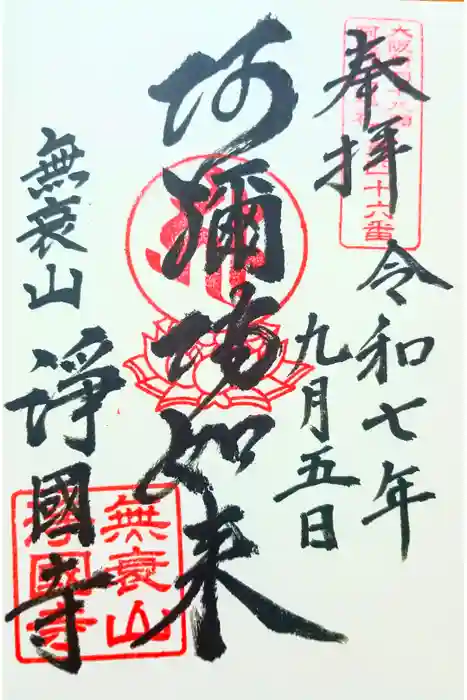 奉拝
大阪
十六番
令和七年
九月五日
阿彌陀如来
無衰山
淨國寺
無衰山
淨國寺